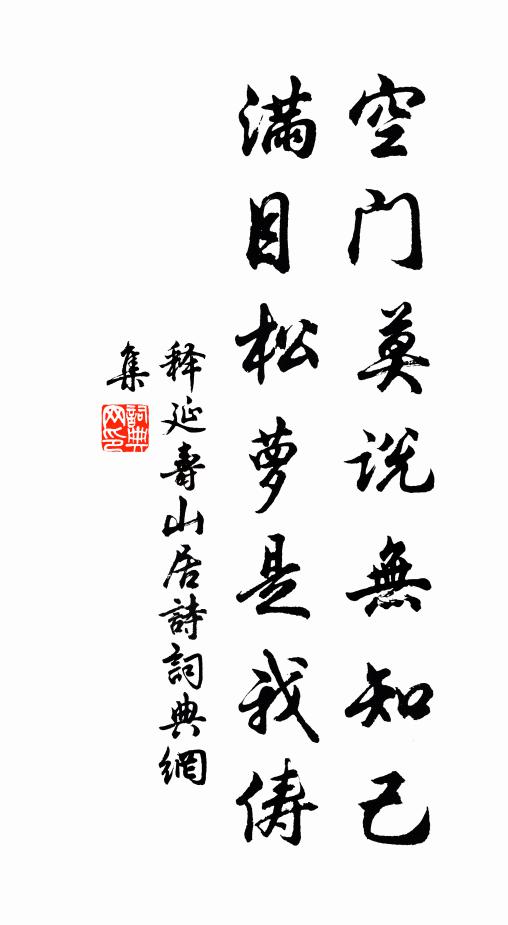 空门莫说無知己
满目松萝是我俦
释延壽山居詩詞典網
集
詞典网印